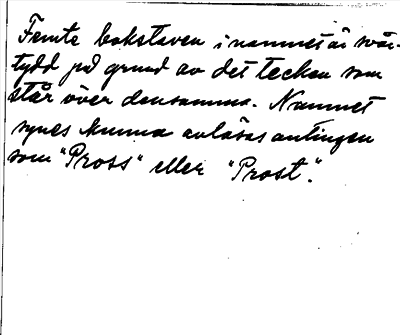 Femte bokstaven i namnet är svår-
tydd på grund av det tecken som
står över densamma. Namnet
synes kunna avläsas antingen
som "Pross" eller "Prost".